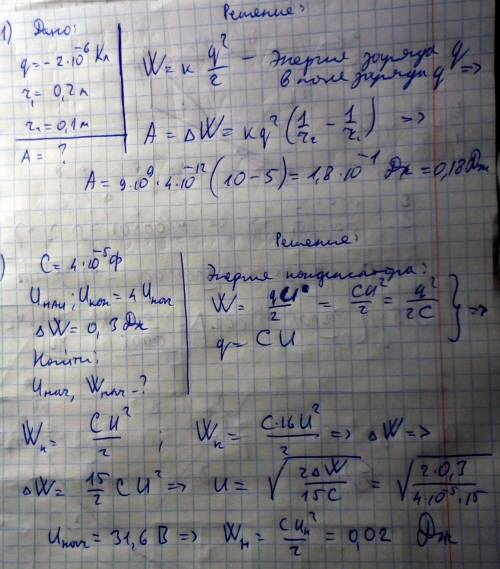 Решение:
1) Дано:
q = -2·10⁻⁶ Кл
r₁ = 0,2 м
r₂ = 0,1 м
A = ?
W = к q²/r — Энергия заряда q
в поле заряда q =>
A = ΔW = к q² (1/r₂ - 1/r₁) =>
A = 9·10⁹·4·10⁻¹² (10-5) = 1,8·10⁻¹ Дж = 0,18 Дж
Решение:
)
C = 4·10⁻⁵ Ф
Uнач; Uкон = 4 Uнач
ΔW = 0,3 Дж
Найти:
Uнач, Wнач - ?
Энергия конденсатора:
W = qU/2 = CU²/2 = q²/2C
q = CU } =>
Wн = CU²/2 ; Wк = C·16U²/2 => ΔW =>
ΔW = 15/2 CU² => U = √(2ΔW/15C) = √(2·0,3/4·10⁻⁵·15)
Uнач = 31,6 В => Wн = CUн²/2 = 0,02 Дж